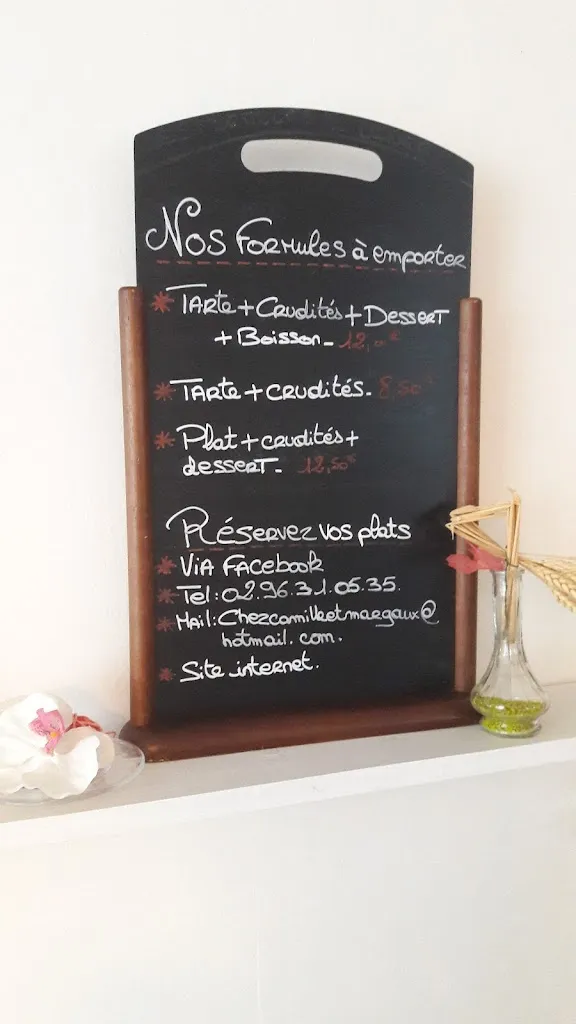 Nos Formules à emporter
* Tarte + Crudités + Dessert
+ Boisson - 12,00€
* Tarte + crudités - 8,50€
* Plat + crudités +
dessert - 12,50€
Réservez vos plats
* Via Facebook
* Tel : 02.96.31.05.35.
* Mail : Chezcamilleetmargaux@
hotmail.com.
* Site internet.